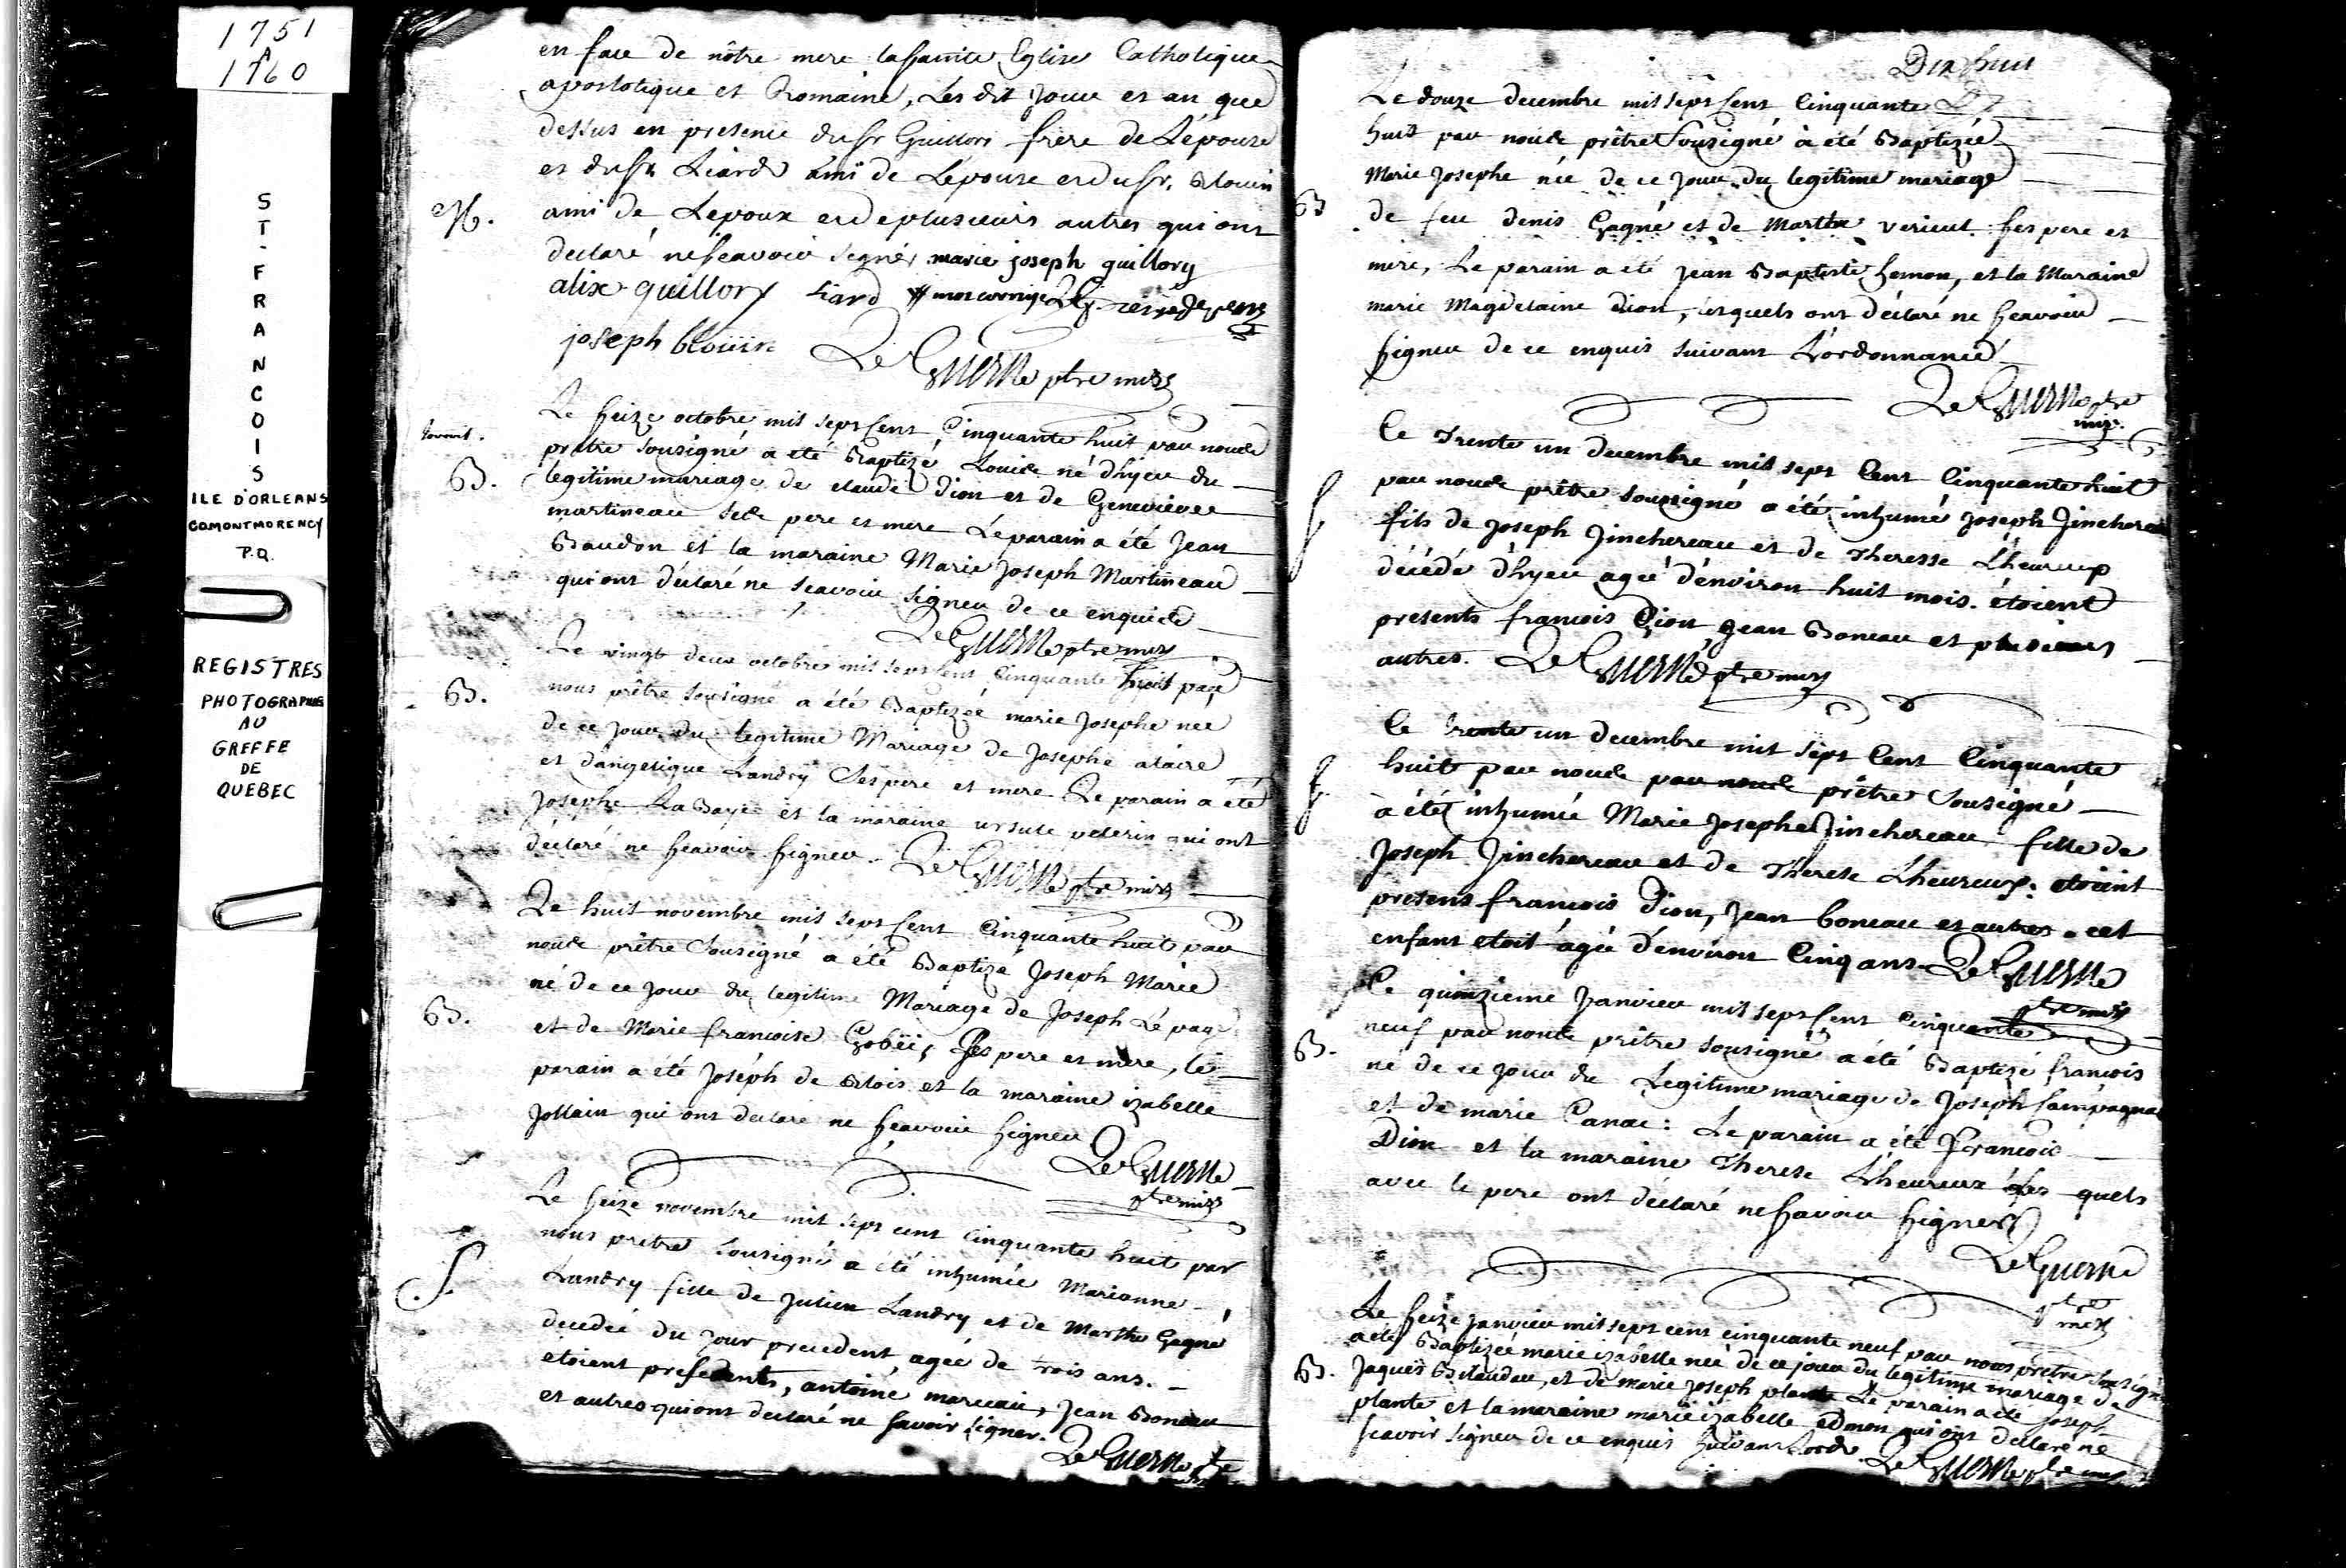 1751
A
1760
ST-FRANCOIS
ILE D'ORLEANS
COMONTMORENCY
P.Q.
REGISTRES
PHOTOGRAPHIES
AU
GREFFE
DE
QUEBEC
en face de nôtre mere la sainte Eglise Catholique
apostolique et Romaine, Les dit jour et an que
dessus en presence du sr Guillory frere de L'épouse
et du sr Liard ami de L'épouse et du sr. Blouin
M. ami de Lepoux et de plusieurs autres qui ont
declaré ne sçavoir signer marie joseph guillory
alix guillory Liard
joseph bloüin Le Guerne ptre miss
Le seize octobre mil sept cent Cinquante huit par nous
prêtre sousigné a été Baptizé Louis né d'hyer du
B. legitime mariage de claude Dion et de Genevieve
martineau ses pere et mere Le parain a été Jean
Baudon et la maraine Marie Joseph Martineau
qui ont déclaré ne sçavoir signer de ce enquis
Le Guerne ptre miss
Le vingt deux octobre mil sept cent Cinquante huit par
B. nous prêtre sousigné a été Baptizée marie Josephe née
de ce jour du legitime Mariage de Josephe alaire
et d'angelique Landry ses pere et mere Le parain a été
Josephe La Baye et la maraine ursule peterin qui ont
déclaré ne sçavoir signer. Le Guerne ptre miss
Le huit novembre mil sept cent Cinquante huit par
nous prêtre sousigné a été Baptizé Joseph Marie
né de ce jour du legitime Mariage de Joseph Lé page
B. et de Marie francoise Gobëil ses pere et mere, le
parain a été Joseph de Blois et la maraine izabelle
Jollain qui ont declaré ne sçavoir signer
Le Guerne
ptre miss
Le seize novembre mil sept cent cinquante huit par
nous prêtre sousigné a été inhumée Marianne
S. Landry fille de Julien Landry et de Marthe Gagné
decedée du jour precedent, agée de trois ans.
etoient presents, antoine marceau, Jean Boneau
et autres qui ont declaré ne savoir signer.
Le Guerne ptre
miss
Dix huit
Le douze decembre mil sept cent Cinquante
huit par nous prêtre sousigné à été Baptizée
Marie Josephe née de ce jour du legitime mariage
B de feu denis Gagné et de Marthe verieul ses pere et
mere, Le parain a été jean Baptiste hemon, et la Maraine
marie Magdelaine Dion, lesquels ont déclaré ne sçavoir
signer de ce enquis suivant L'ordonnance
Le Guerne ptre
miss.
Ce trente un decembre mil sept Cent Cinquante huit
par nous prêtre sousigné a été inhumé joseph Jinchereau
S fils de Joseph Jinchereau et de Theresse L'heureux
décédé d'hyer agé d'environ huit mois. étoient
presents francois Dion, jean Boneau et plusieurs
autres. Le Guerne ptre miss
Ce trente un decembre mil sept Cent Cinquante
S huit par nous par nous prêtre sousigné
à été inhumée Marie Josephe Jinchereau fille de
Joseph Jinchereau et de Therese L'heureux: etoient
presens francois Dion, Jean boneau et autres. cet
enfant etoit agée d'environ Cinq ans. Le Guerne
ptre miss
Ce quinzieme Janvier mil sept cent cinquante
B. neuf par nous prêtre sousigné a été Baptizé francois
né de ce jour du Legitime mariage de Joseph Campagna
et de marie Canac: Le parain a été francois
Dion et la maraine Therese L'heureux Les quels
avec le pere ont déclaré ne savoir signer
Le Guerne
ptre
miss
Le seize janvier mil sept cent cinquante neuf par nous prêtre sousigné
a été Baptizée marie izabelle née de ce jour du legitime mariage de
B. Jaques Bilaudau, et de marie joseph plante Le parain a été Joseph
plante et la maraine marie izabelle edmon qui ont declaré ne
sçavoir signer de ce enquis suivant Lord. Le Guerne ptre miss